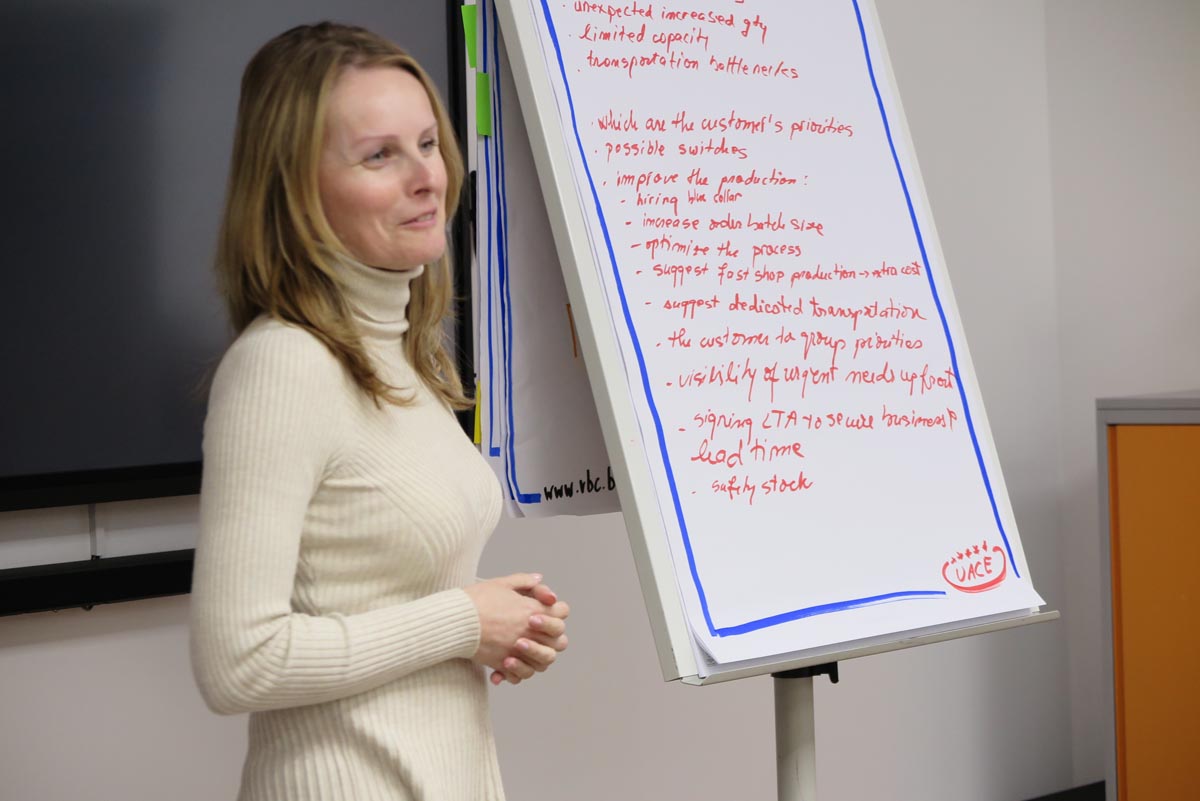 · unexpected increased qty
· limited capacity
· transportation bottlenecks
· which are the customer's priorities
· possible switches
· improve the production:
- hiring blue collar
- increase order batch size
- optimize the process
- suggest fast shop production → extra cost
- suggest dedicated transportation
· the customer to group priorities
· visibility of urgent needs upfront
· signing LTA to secure business &
lead time
· safety stock
UACE
www.rbc.b